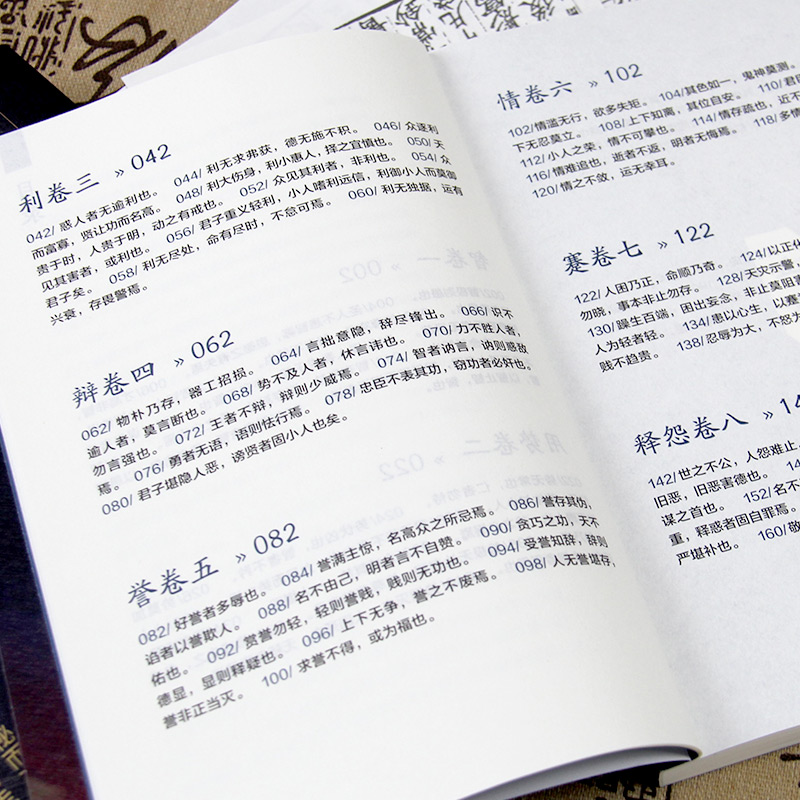 利卷三 » 042
042/ 惑人者无逾利也。 044/ 利无求弗获，德无施不积。 046/ 众逐利
而富寡，贤让功而名高。 048/ 利大伤身，利小惠人，择之宜慎也。 050/ 天
贵于时，人贵于明，动之有戒也。 052/ 众见其利者，非利也。 054/ 众
见其害者，或利也。 056/ 君子重义轻利，小人嗜利远信，利御小人而莫御
君子矣。 058/ 利无尽处，命有尽时，不怠可焉。 060/ 利无独据，运有
兴衰，存畏警焉。
辩卷四 » 062
062/ 物朴乃存，器工招损。 064/ 言拙意隐，辞尽锋出。 066/ 识不
逾人者，莫言断也。 068/ 势不及人者，休言讳也。 070/ 力不胜人者，
勿言强也。 072/ 王者不辩，辩则少威焉。 074/ 智者讷言，讷则惑敌
焉。 076/ 勇者无语，语则怯行焉。 078/ 忠臣不表其功，窃功者必奸也。
080/ 君子堪隐人恶，谤贤者固小人也矣。
誉卷五 » 082
082/ 好誉者多辱也。 084/ 誉满主惊，名高众之所忌焉。 086/ 誉存其伪，
谄者以誉欺人。 088/ 名不由己，明者言不自赞。 090/ 贪巧之功，天不
佑也。 092/ 赏誉勿轻，轻则誉贱，贱则无功也。 094/ 受誉知辞，辞则
德显，显则释疑也。 096/ 上下无争，誉之不废焉。 098/ 人无誉堪存，
誉非正当灭。 100/ 求誉不得，或为福也。
情卷六 » 102
102/ 情滥无行，欲多失矩。 104/ 其色如一，鬼神莫测。 110/
下无忍莫立。 108/ 上下知离，其位自安。
112/ 小人之荣，情不可攀也。 114/ 情存疏也，近不
116/ 情难追也，逝者不返，明者无悔焉。 118/ 多情
120/ 情之不敛，运无幸耳。
蹇卷七 » 122
122/ 人困乃正，命顺乃奇。 124/ 以正化
勿晓，事本非止勿存。 128/ 天灾示警，
130/ 躁生百端，困出妄念，非止莫阻害
人为轻者轻。 134/ 患以心生，以蹇
贱不趋贵。 138/ 忍辱为大，不怒为
释怨卷八 » 14
142/ 世之不公，人怨难止
旧恶，旧恶害德也。
谋之首也。 152/ 名不
重，释惑者固自罪焉。
严堪补也。 160/ 敬